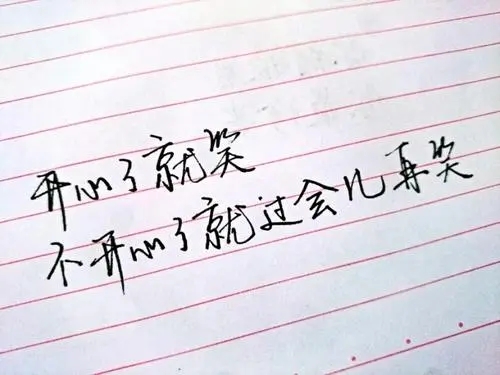 开心了就笑
不开心了就过会儿再笑